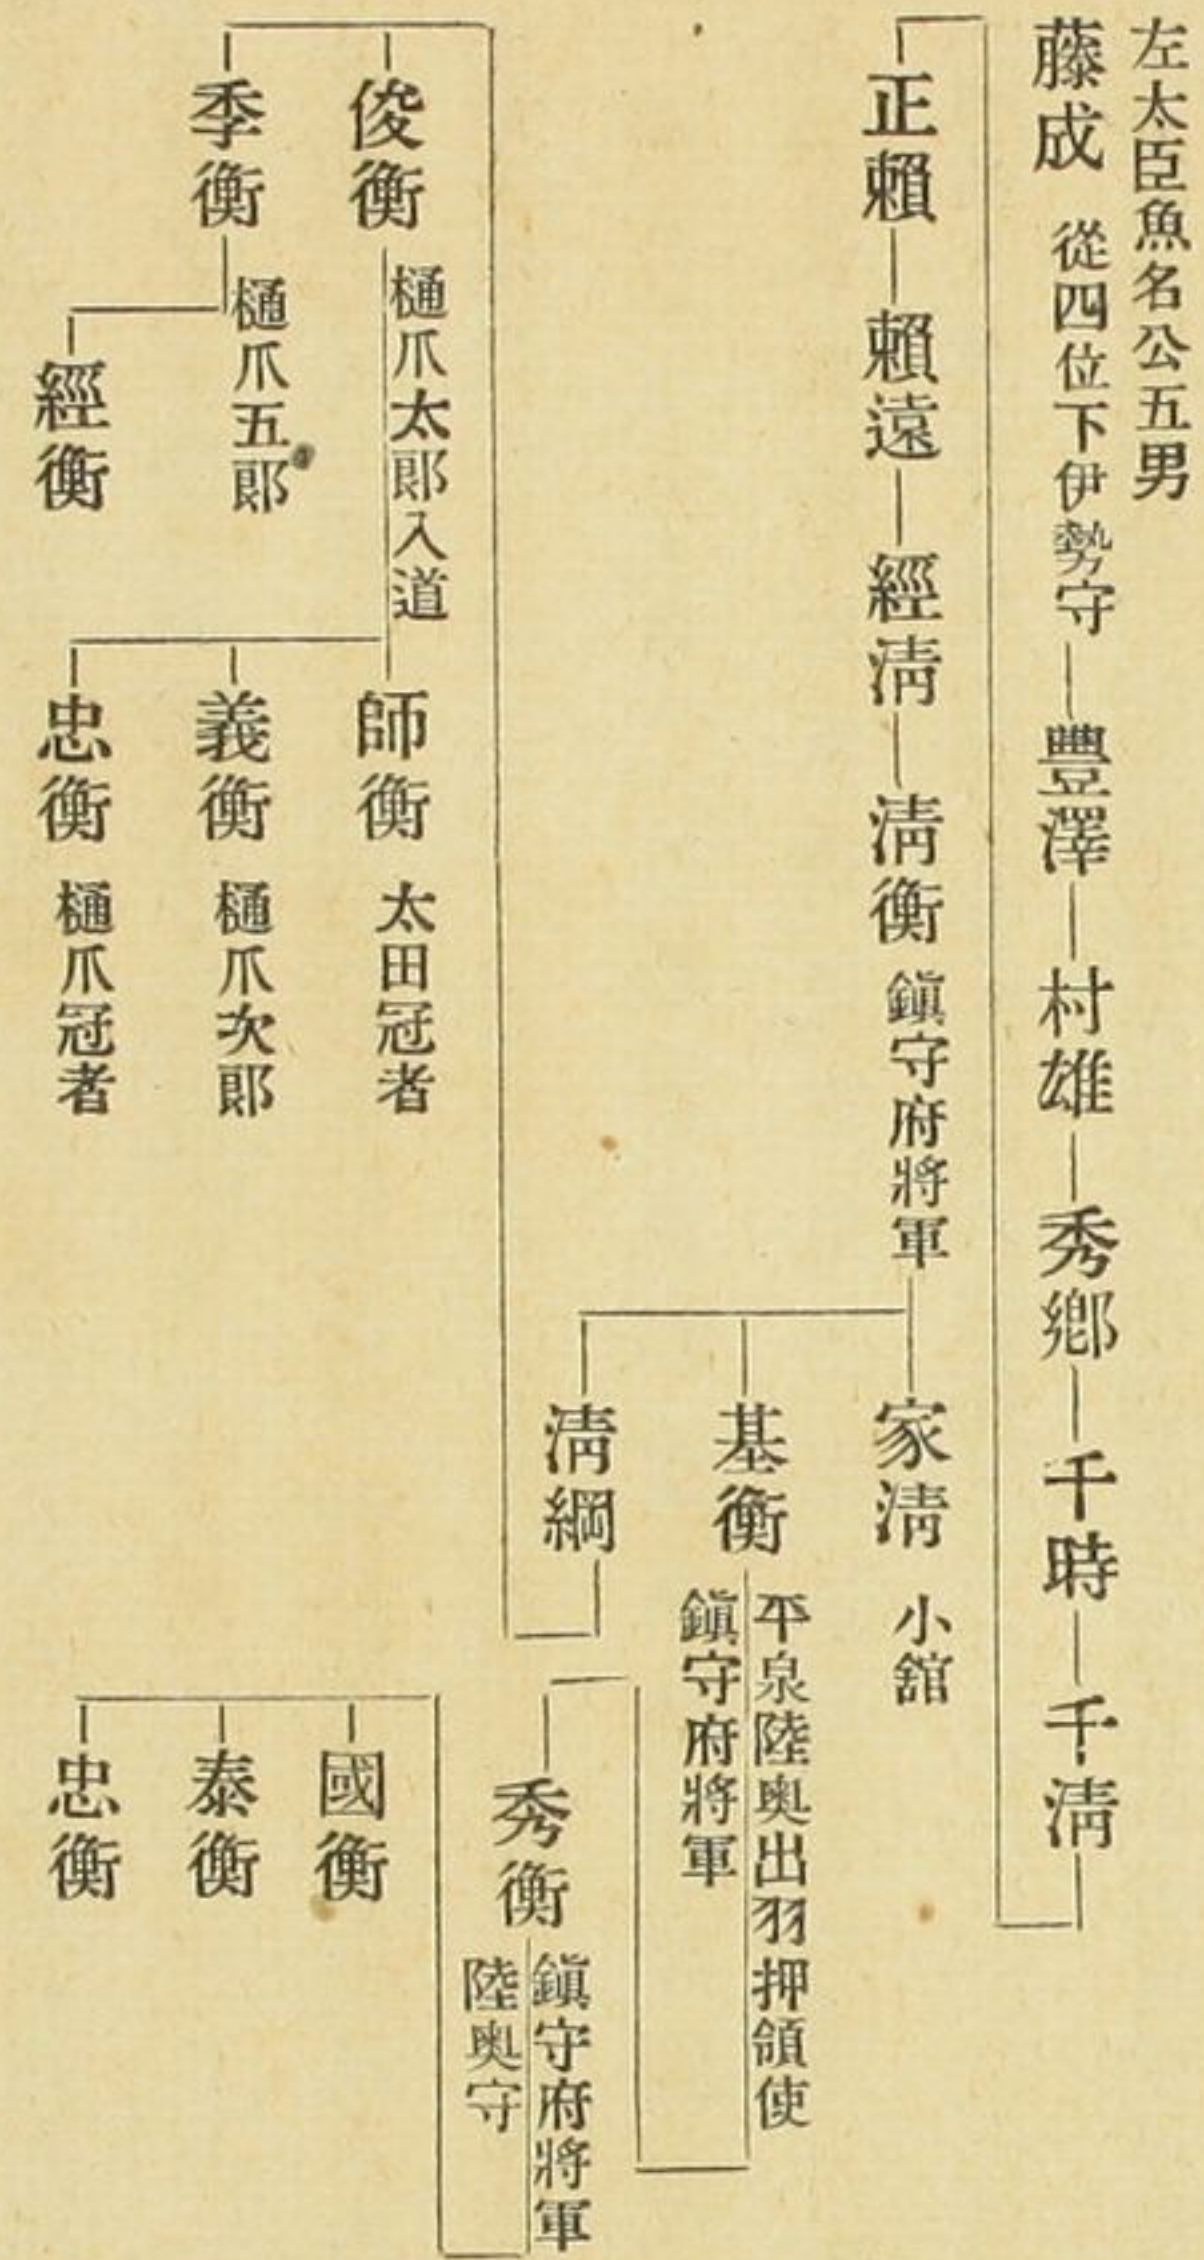 左太臣魚名公五男
藤成 從四位下伊勢守 豐澤 村雄 秀鄕 千時 千淸
正賴 賴遠 經淸 淸衡 鎭守府將軍
家淸 小舘
基衡 平泉陸奧出羽押領使
鎭守府將軍
淸綱
秀衡 鎭守府將軍
陸奧守
國衡
泰衡
忠衡
俊衡 樋爪太郞入道
師衡 太田冠者
義衡 樋爪次郞
忠衡 樋爪冠者
季衡 樋爪五郞
經衡